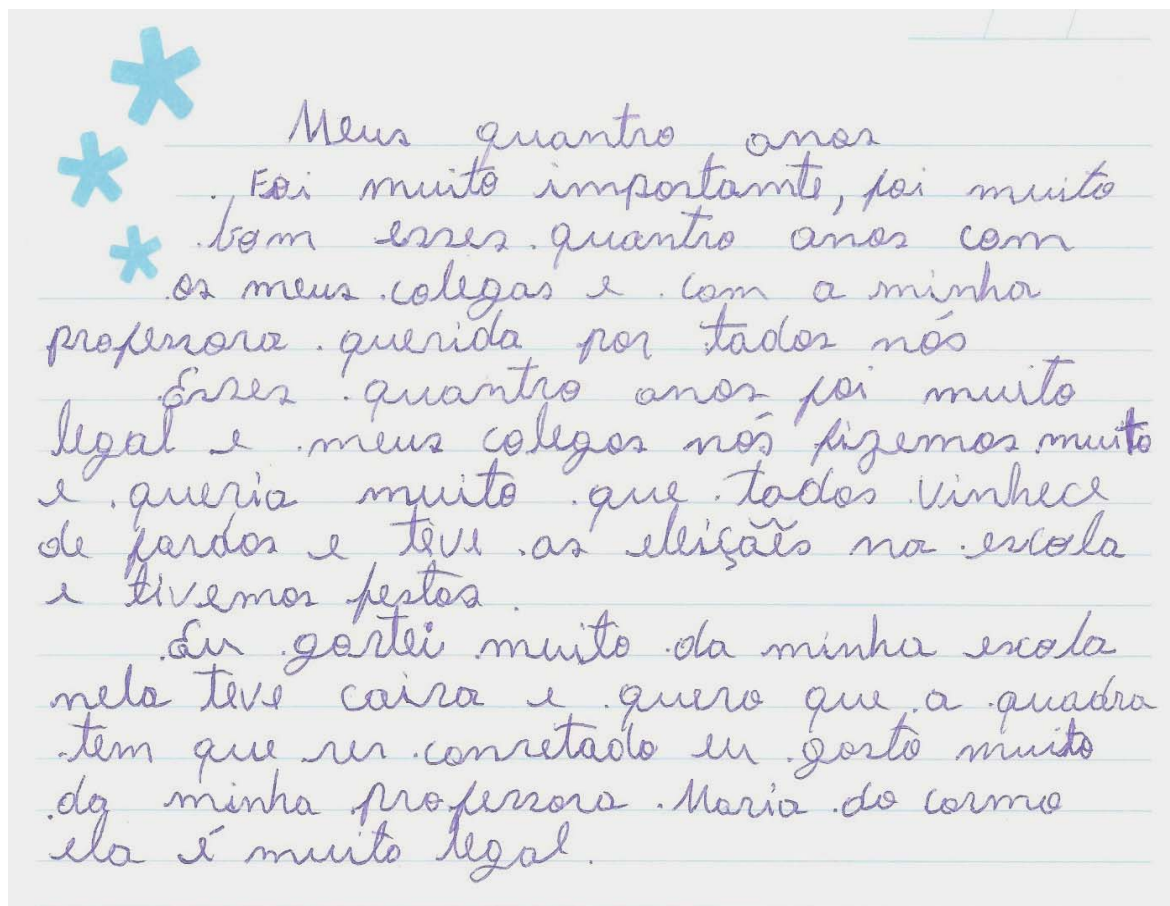 Meus quantro anos
Foi muito importante, foi muito
bom esses quantro anos com
os meus colegas e com a minha
professora querida por todos nós
Esses quantro anos foi muito
legal e meus colegas nós fizemos muito
e queria muito que todos vinhece
de fardos e teve as eleiçãẽs na escola
e tivemos festas.
Eu gostei muito da minha escola
nela teve coisa e quero que a quadra
tem que ser consetado eu gosto muito
da minha professora Maria do carmo
ela é muito legal.